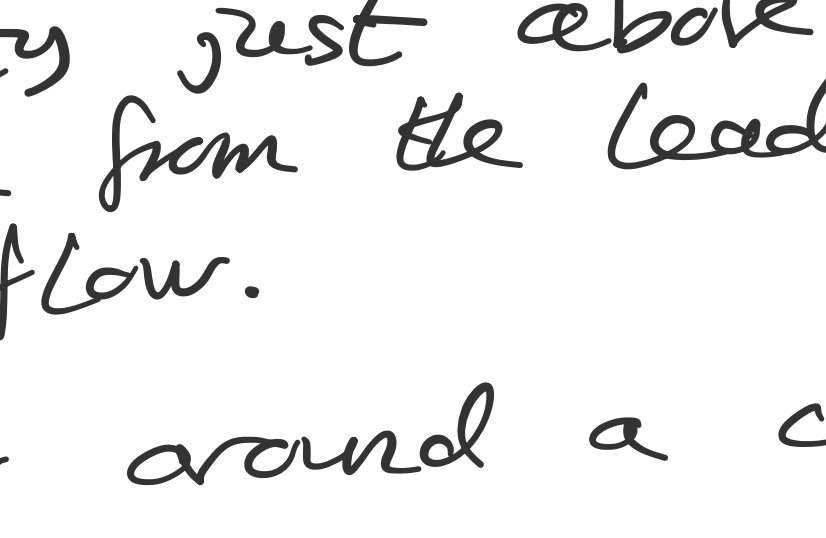 just above
from the lead
flow.
around a